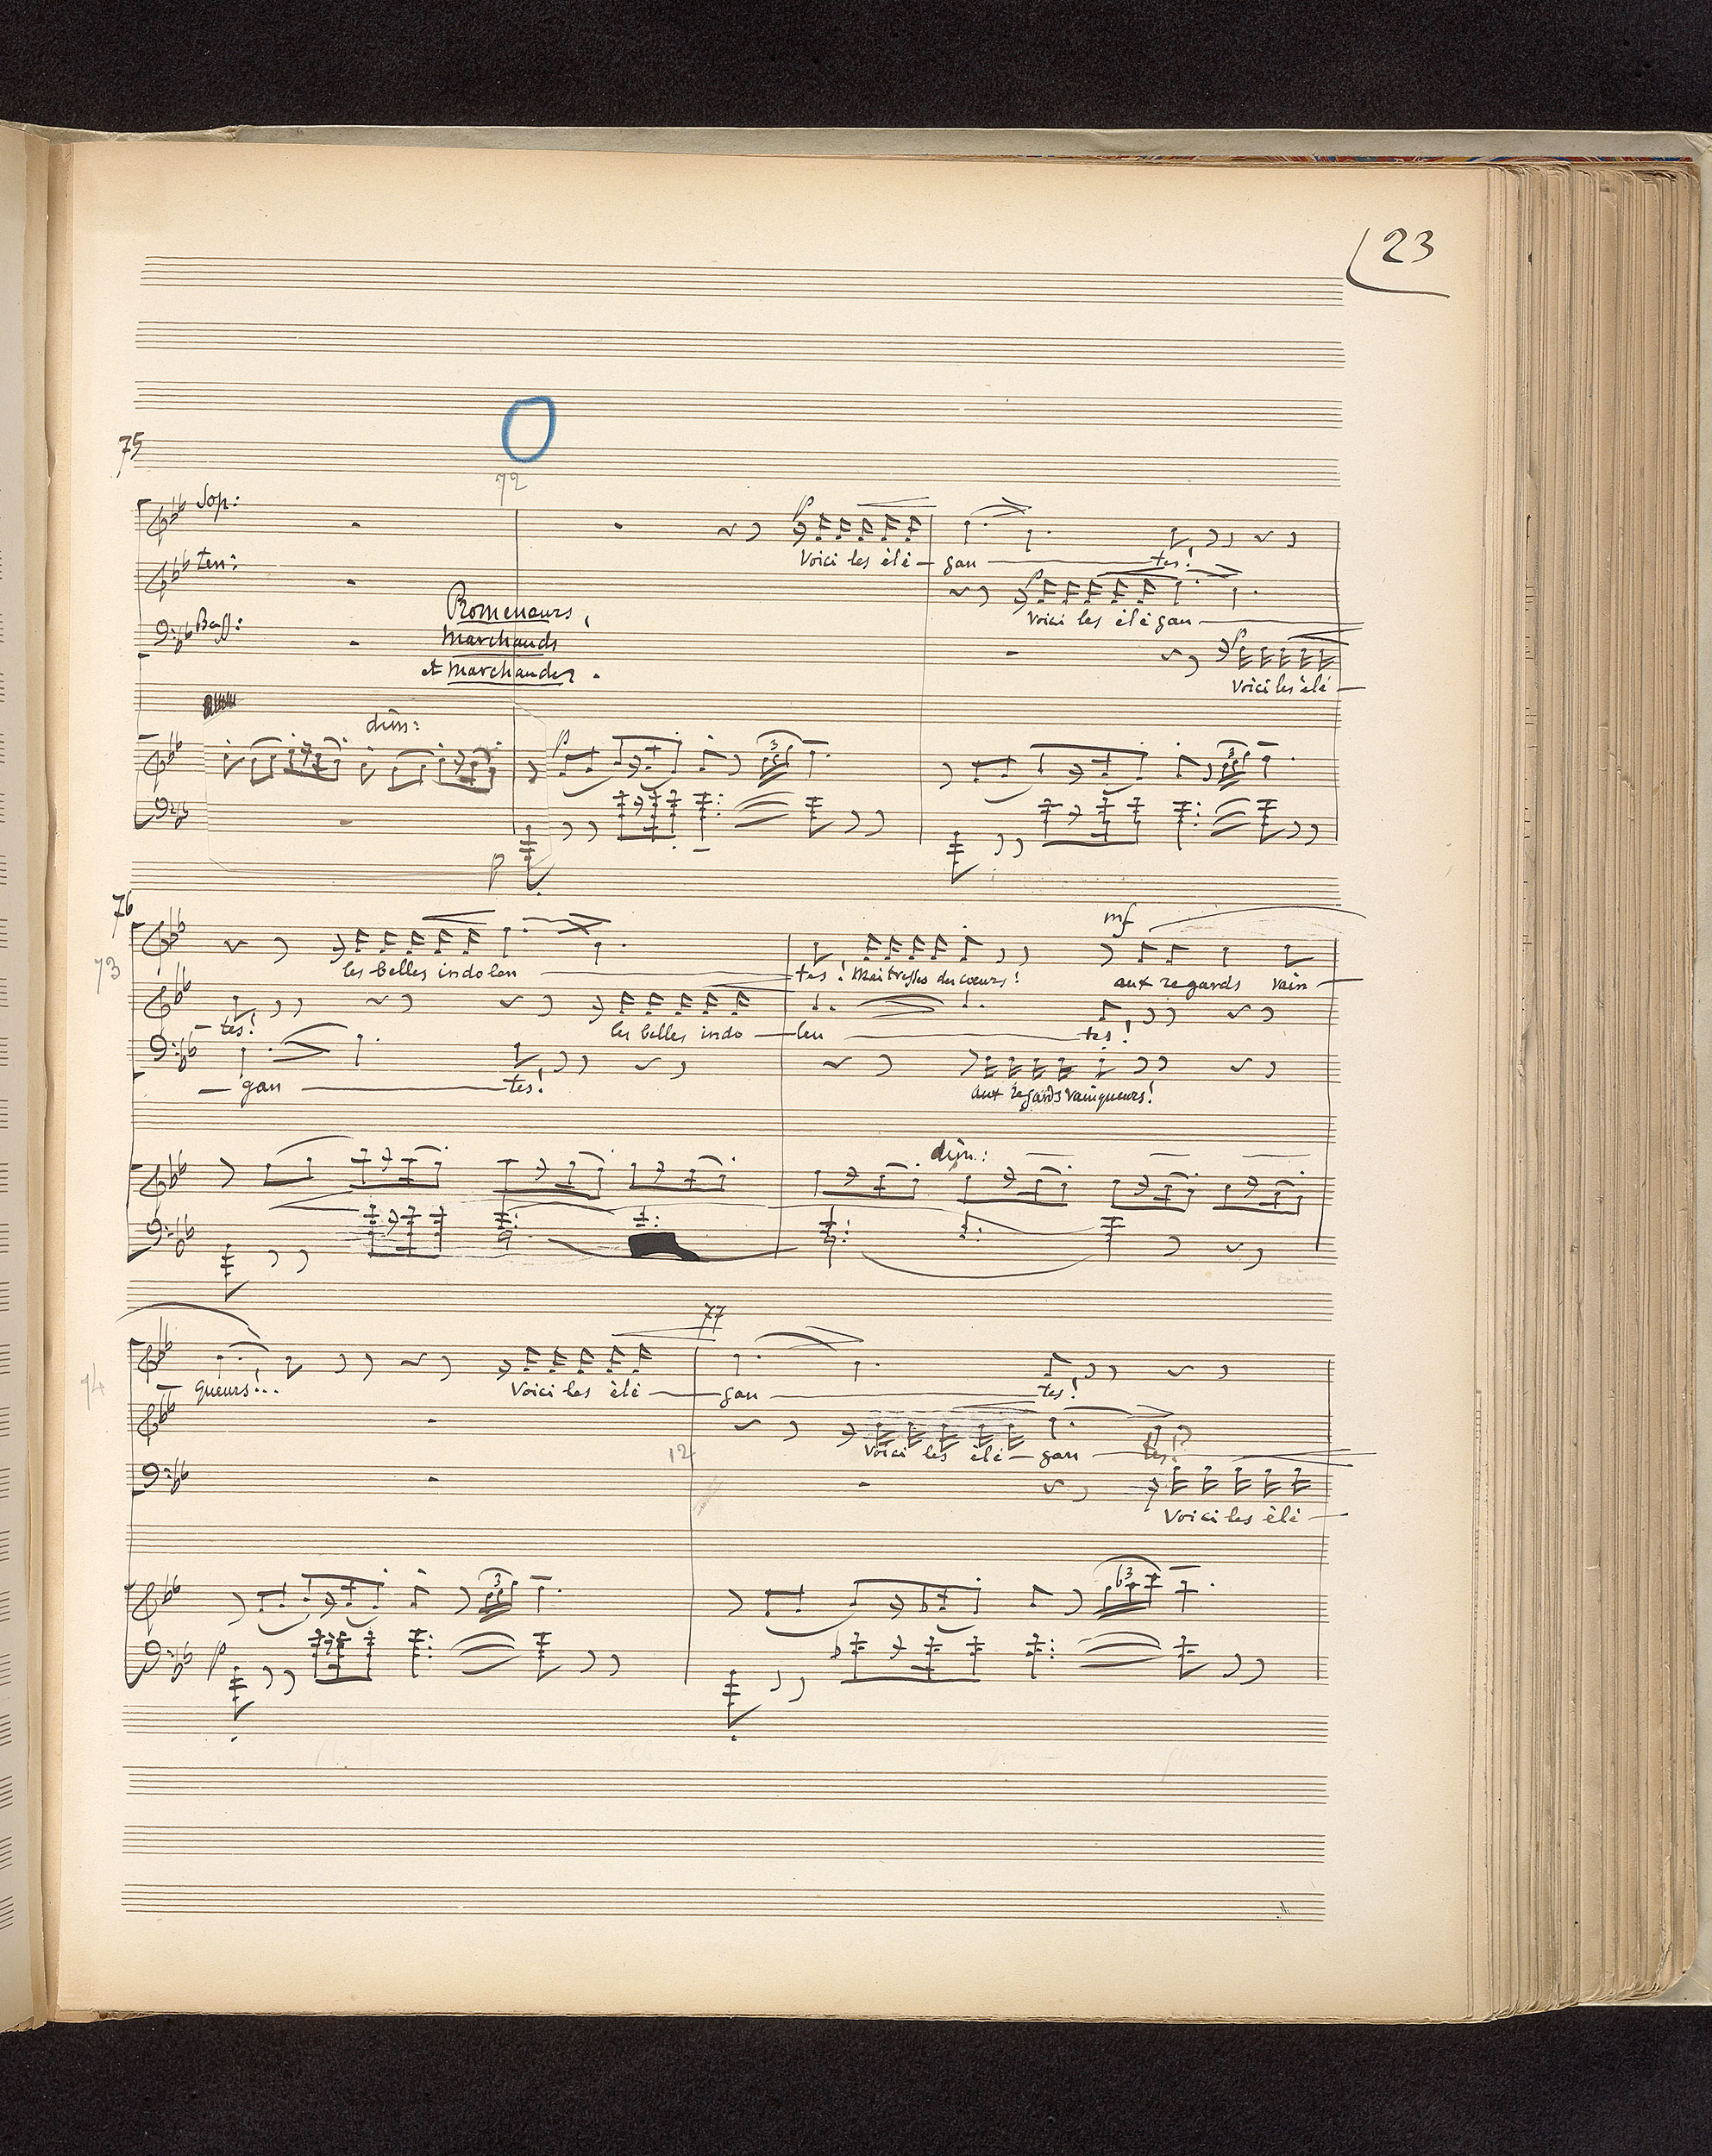 23
75
72
Sop:
Voici les élé - gan - tes!
ten:
Voici les élégan -
Promeneurs,
Marchands
et Marchandes.
Bass:
Voici les élé -
dim:
p
3
3
p
76
mf
73
les belles indolen - tes! Maîtresses des cœurs! aux regards vain -
- tes! les belles indo - len - tes!
- gan - tes! aux regards vainqueurs!
dim:
77
74
queurs!... Voici les élé - gan - tes!
12
Voici les élé - gan - tes!
Voici les élé -
3
3
p